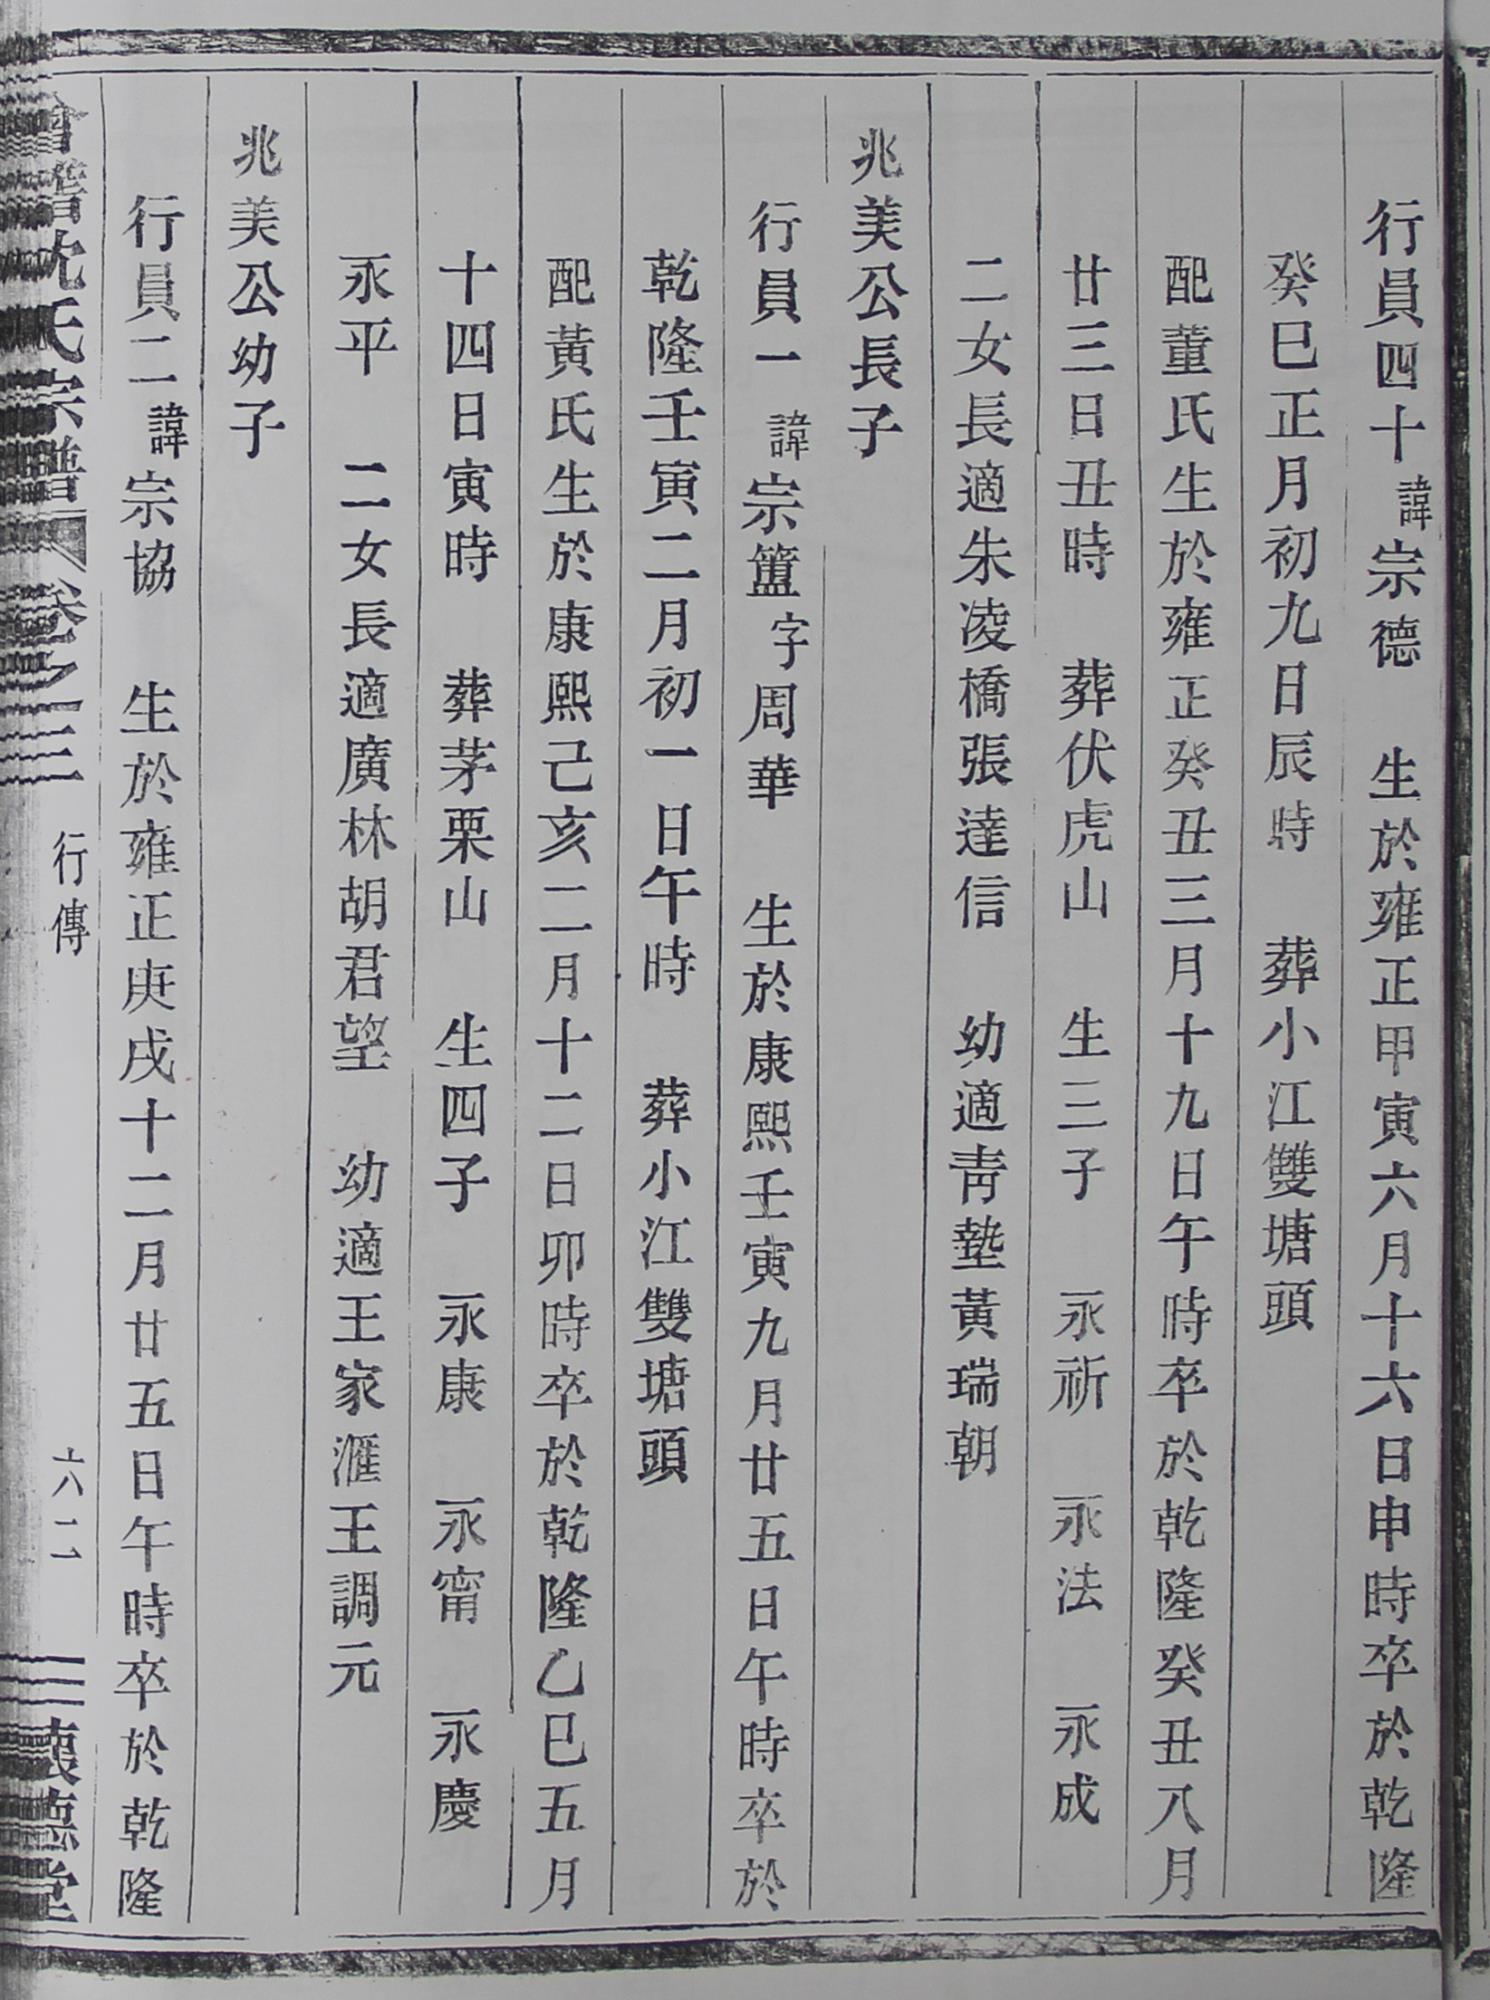 行員四十諱宗德　生於雍正甲寅六月十六日申時卒於乾隆
癸巳正月初九日辰時　葬小江雙塘頭
配董氏生於雍正癸丑三月十九日午時卒於乾隆癸丑八月
廿三日丑時　葬伏虎山　生三子　永祈　永法　永成
二女長適朱凌橋張達信　幼適青墊黃瑞朝
兆美公長子
行員一諱宗簠字周華　生於康熙壬寅九月廿五日午時卒於
乾隆壬寅二月初一日午時　葬小江雙塘頭
配黃氏生於康熙己亥二月十二日卯時卒於乾隆乙巳五月
十四日寅時　葬茅栗山　生四子　永康　永甯　永慶
永平　二女長適廣林胡君望　幼適王家滙王調元
兆美公幼子
行員二諱宗協　生於雍正庚戌十二月廿五日午時卒於乾隆
會稽沈氏宗譜　卷之三　行傳　六二　懷德堂